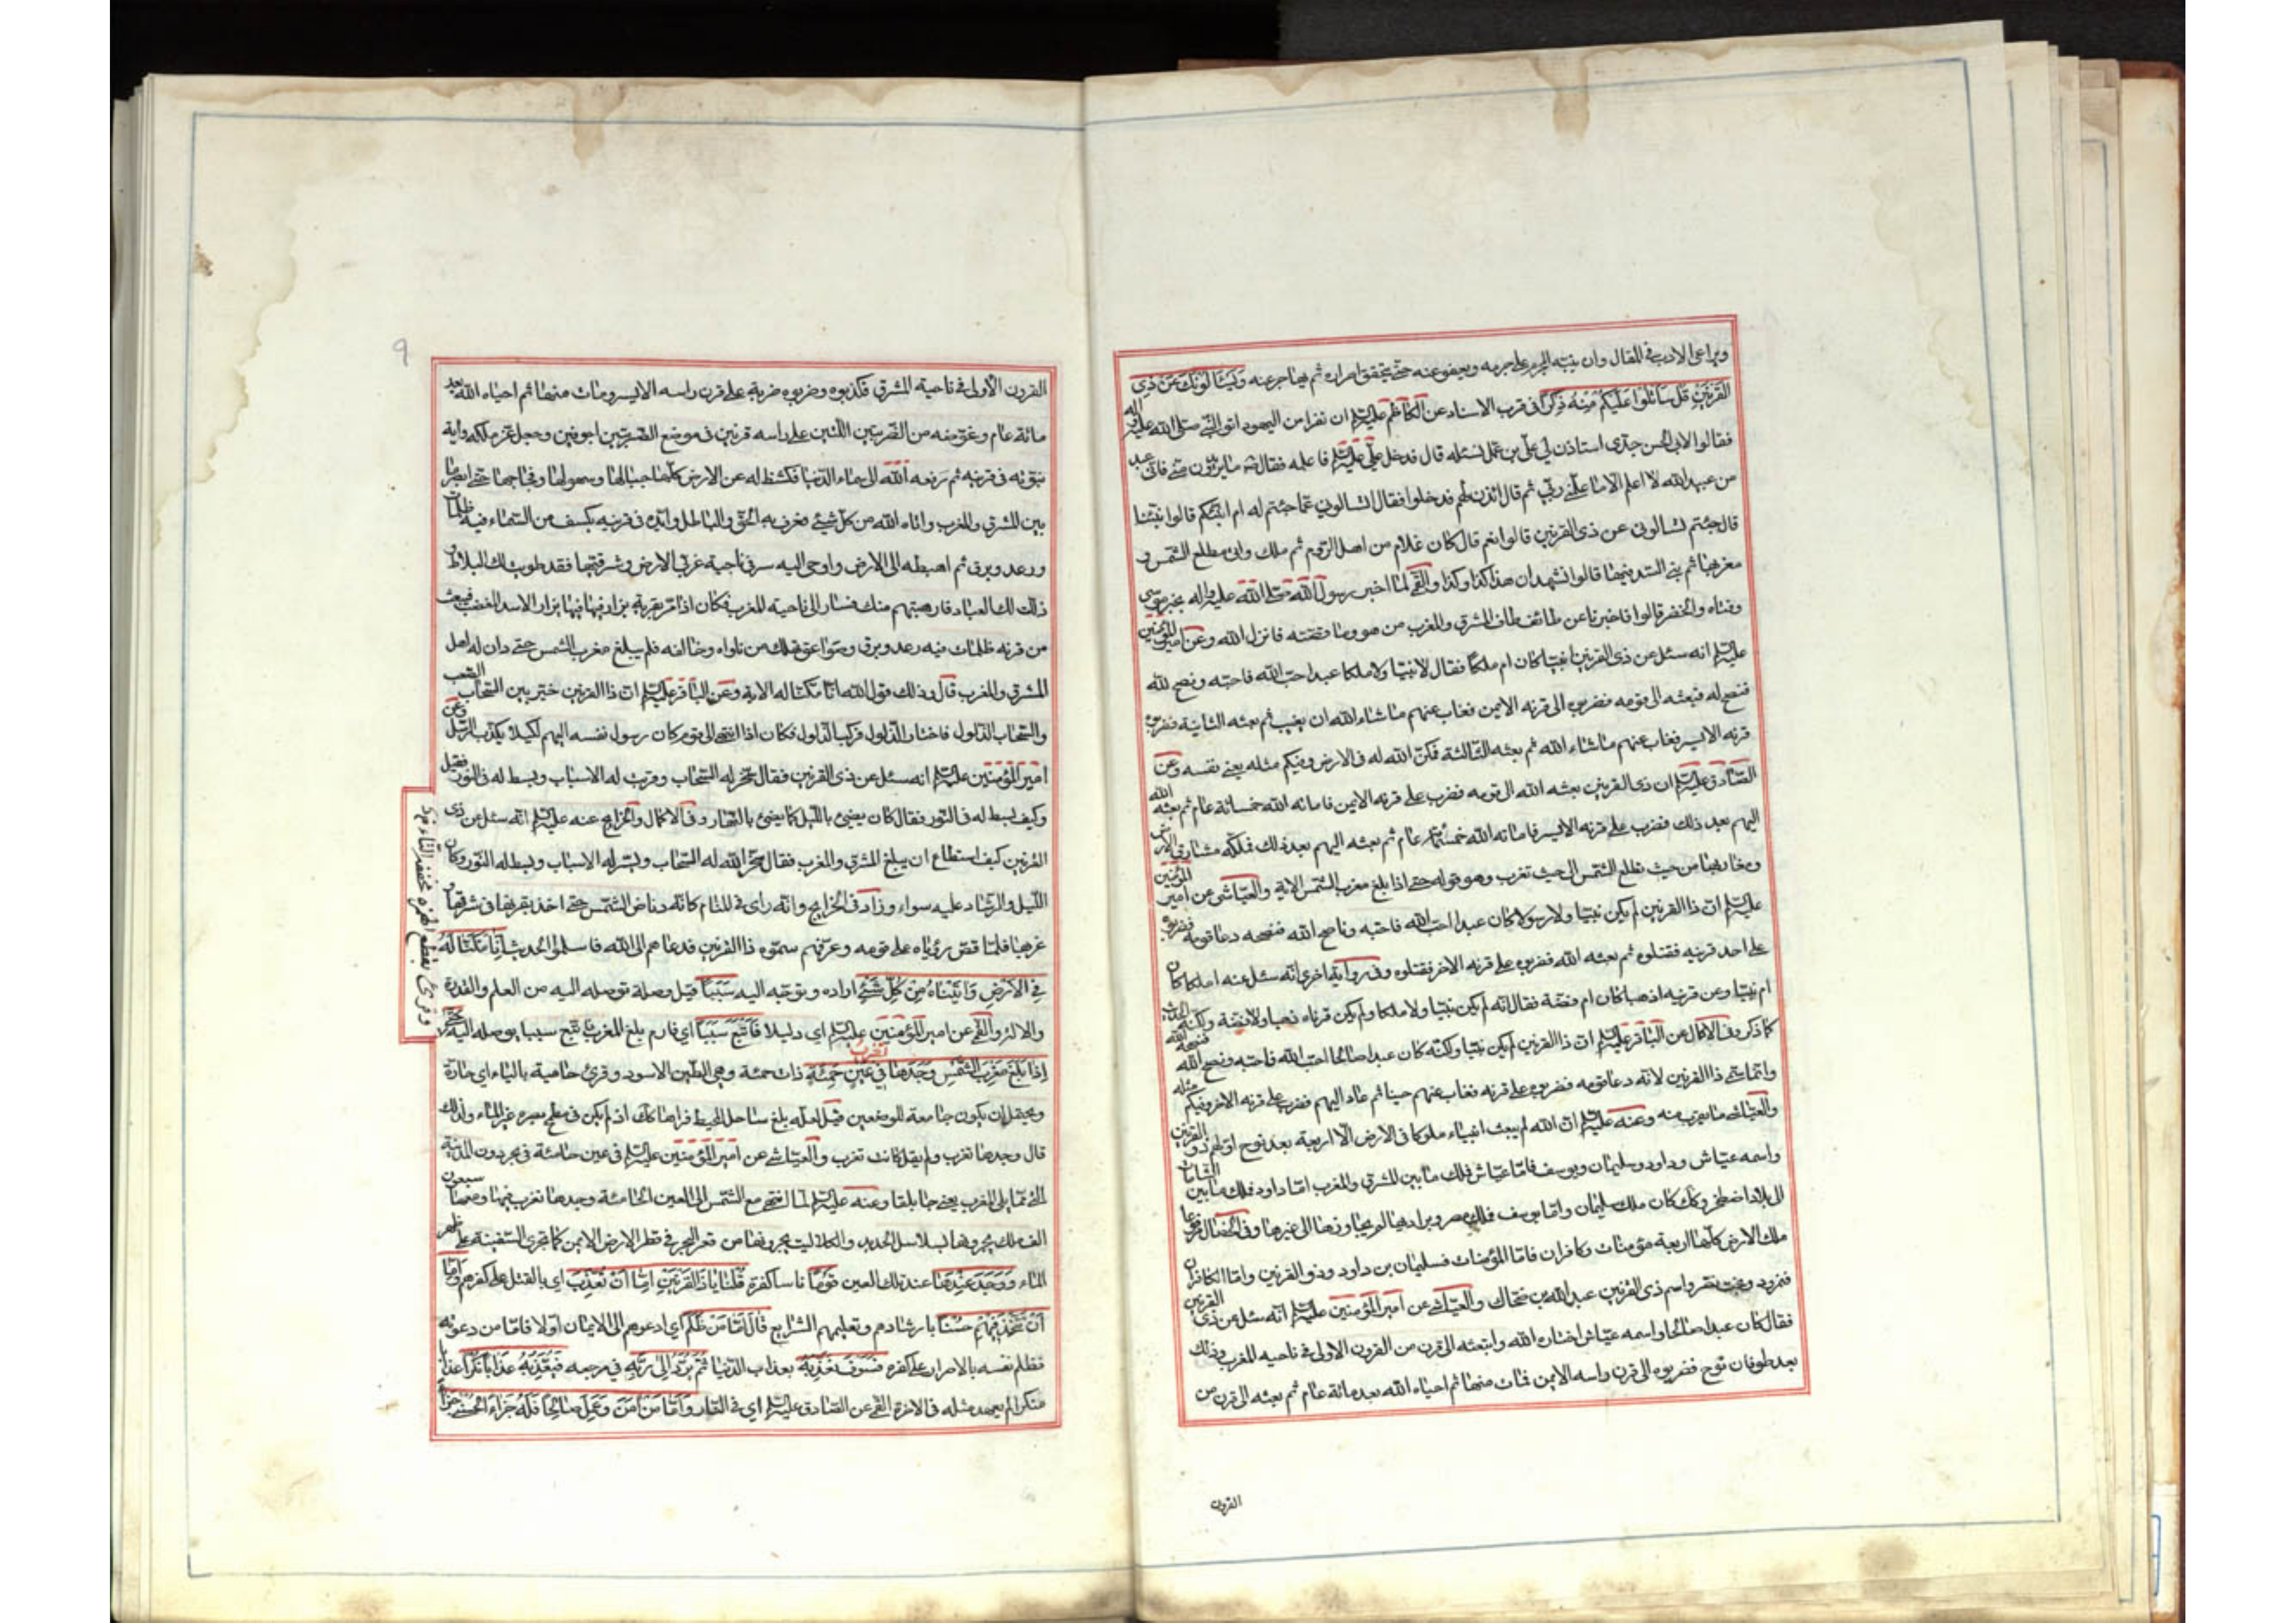 ويراعى الادب في المقال وان ينبه المجرم على جرمه ويعفو عنه حتى يتحقق اصراره ثم يهاجر عنه وَيَسْأَلُونَكَ عَنْ ذِي
القَرْنَيْنِ قُلْ سَأَتْلُوا عَلَيْكُمْ مِنْهُ ذِكْرًا في قرب الاسناد عن الكاظم عليه السلم ان نفرا من اليهود اتوا النبي صلى الله عليه واله
فقالوا لابي الحسن جدى استاذن لي على بن عمك نسئله قال فدخل علي عليه السلم فاعلمه فقال ما يريدون مني فاني عبد
من عبيد الله لا اعلم الا ما علمني ربي ثم قال ائذن لهم فدخلوا فقال اتسالوني عما جئتم له ام انبئكم قالوا نبئنا
قال جئتم تسالونى عن ذى القرنين قالوا نعم قال كان غلام من اهل الروم ثم ملك واتى مطلع الشمس و
مغربها ثم بنى السد فيها قالوا نشهد ان هذا كذا وكذا والقمي لما اخبر رسول الله صلى الله عليه واله بخبر موسى
وفتاه والخضر قالوا فاخبرنا عن طائف طاف المشرق والمغرب من هو وما قصته فانزل الله وعن امير المؤمنين
عليه السلم انه سئل عن ذى القرنين انبيا كان ام ملكا فقال لا نبيا ولا ملكا عبد احب الله فاحبه ونصح لله
فنصح له فبعثه الى قومه فضربوه الى قرنه الايمن فغاب عنهم ما شاء الله ان يغيب ثم بعثه الثانية فضرب
قرنه الايسر فغاب عنهم ما شاء الله ثم بعثه الثالثة فمكن الله له في الارض وفيكم مثله يعنى نفسه وعن
الصادق عليه السلم ان ذى القرنين بعثه الله الى قومه فضرب على قرنه الايمن فاماته الله خمسمائة عام ثم بعثه الله
اليهم بعد ذلك فضرب على قرنه الايسر فاماته الله خمسمائة عام ثم بعثه اليهم بعد ذلك فملكه مشارق الارض
ومغاربها من حيث تطلع الشمس الى حيث تغرب وهو قوله حتى اذا بلغ مغرب الشمس الاية والعياشى عن امير المؤمنين
عليه السلم ان ذا القرنين لم يكن نبيا ولا رسولا كان عبدا احب الله فاحبه وناصح الله فنصحه دعا قومه فضربوه
على احد قرنيه فقتلوه ثم بعثه الله فضربوه على قرنه الاخر فقتلوه وفى رواية اخرى انه سئل عنه املكا كان
ام نبيا وعن قرنيه اذهبا كان ام فضة فقال انه لم يكن نبيا ولا ملكا ولم يكن قرناه ذهبا ولا فضة ولكنه الحديث
كما ذكر وفى الاكمال عن الباقر عليه السلم ان ذا القرنين لم يكن نبيا ولكنه كان عبدا صالحا احب الله فاحبه ونصح لله فنصحه الله
وانما سمى ذا القرنين لانه دعا قومه فضربوه على قرنه فغاب عنهم حينا ثم عاد اليهم فضرب على قرنه الاخر وفيكم مثله
والعياشى ما يقرب منه وعنه عليه السلم ان الله لم يبعث انبياء ملوكا فى الارض الا اربعة بعد نوح اولهم ذو القرنين
واسمه عياش وداود وسليمان ويوسف فاما عياش فملك ما بين المشرق والمغرب اما داود فملك ما بين الشامات
الى بلاد اصطخر وكك كان ملك سليمان واما يوسف فملك مصر وبراريها لم يجاوزها الى غيرها وفى الخصال مرفوعا
ملك الارض كلها اربعة مؤمنان وكافران فاما المؤمنان فسليمان بن داود وذو القرنين واما الكافران
فنمرود وبخت نصر واسم ذى القرنين عبد الله بن ضحاك والعياشى عن امير المؤمنين عليه السلم انه سئل عن ذى القرنين
فقال كان عبدا صالحا واسمه عياش اختاره الله وابتعثه الى قرن من القرون الاولى فى ناحيه المغرب وذلك
بعد طوفان نوح فضربوه الى قرن راسه الايمن فمات منها ثم احياه الله بعد مائة عام ثم بعثه الى قرن من
القرون
٩
القرون الأولى فى ناحيته المشرق فكذبوه وضربوه ضربة على قرن راسه الايسر ومات منها ثم احياه الله بعد
مائة عام وعوضه من الضربتين اللتين على راسه قرنين فى موضع الضربتين اجوفين وجعل عز ملكه واية
نبوته فى قرنيه ثم رفعه الله الى سماء الدنيا فكشط له عن الارض كلها جبالها وسهولها وفجاجها حتى ابصر ما
بين المشرق والمغرب واتاه الله من كل شيئ فعرف به الحق والباطل وايده فى قرنيه بكسف من السماء فيه ظلمات
ورعد وبرق ثم اهبطه الى الارض واوحى اليه سر فى ناحية غربى الارض وشرقيها فقد طويت لك البلاد و
ذللت لك العباد فارهبتهم منك فسار الى ناحيته المغرب فكان اذا مر بقرية يزار فيها كما يزار الاسد المغضب فيبعث
من قرنه ظلمات فيه رعد وبرق وصواعق تهلك من ناواه وخالفه فلم يبلغ مغرب الشمس حتى دان له اهل
المشرق والمغرب قال وذلك قول الله انا مكنا له الاية وعن الباقر عليه السلم ان ذا القرنين خير بين السحاب الصعب
والسحاب الذلول فاختار الذلول فركب الذلول فكان اذا انتهى الى قوم كان رسول نفسه اليهم لكيلا يكذب الرسل وعن
امير المؤمنين عليه السلم انه سئل عن ذى القرنين فقال سخر له السحاب وقربت له الاسباب وبسط له فى النور فقيل
وكيف بسط له فى النور فقال كان يضيئ بالليل كما يضيئ بالنهار وفى الاكمال والخرايج عنه عليه السلم انه سئل عن ذى
القرنين كيف استطاع ان يبلغ المشرق والمغرب فقال سخر الله له السحاب ويسر له الاسباب وبسط له النور وكان
الليل والنهار عليه سواء وزاد فى الخرايج وانه راى فى المنام كانه دنا من الشمس حتى اخذ بقرنها فى شرقها و
غربها فلما قص رؤياه على قومه وعرفهم سموه ذا القرنين فدعاهم الى الله فاسلموا الحديث إِنَّا مَكَّنَّا لَهُ
فِي الْأَرْضِ وَآتَيْنَاهُ مِنْ كُلِّ شَيْءٍ اراده وتوجه اليه سَبَبًا قيل وصلة توصله اليه من العلم والقدرة
والالة والقمي عن امير المؤمنين عليه السلم اى دليلا فَأَتْبَعَ سَبَبًا اى فاراد بلوغ المغرب فاتبع سببا يوصله اليه حَتَّى
إِذَا بَلَغَ مَغْرِبَ الشَّمْسِ وَجَدَهَا تَغْرُبُ فِي عَيْنٍ حَمِئَةٍ ذات حمئة وهى الطين الاسود وقرئ حامية بالياء اى حارة
ويحتمل ان يكون جامعة للوصفين قيل لعله بلغ ساحل المحيط فراها كك اذ لم يكن فى مطمح بصره غير الماء ولذلك
قال وجدها تغرب ولم يقل كانت تغرب والعياشى عن امير المؤمنين عليه السلم فى عين حامئة فى بحر دون المدينة
التى مما يلى المغرب يعنى جابلقا وعنه عليه السلم لما انتهى مع الشمس الى العين الحامئة وجدها تغرب فيها ومعها سبعون
الف ملك يجرونها بسلاسل الحديد والكلاليب يجرونها من قعر البحر فى قطر الارض الايمن كما تجرى السفينة على ظهر
الماء وَوَجَدَ عِنْدَهَا عند تلك العين قَوْمًا ناسا كفرة قُلْنَا يَا ذَا الْقَرْنَيْنِ إِمَّا أَنْ تُعَذِّبَ اى بالقتل على كفرهم وَإِمَّا
أَنْ تَتَّخِذَ فِيهِمْ حُسْنًا بارشادهم وتعليمهم الشرايع قَالَ أَمَّا مَنْ ظَلَمَ اى ادعوهم الى الايمان اولا فاما من دعوته
فظلم نفسه بالاصرار على كفره فَسَوْفَ نُعَذِّبُهُ بعذاب الدنيا ثُمَّ يُرَدُّ إِلَى رَبِّهِ فى مرجعه فَيُعَذِّبُهُ عَذَابًا نُكْرًا عذابا
منكرا لم يعهد مثله فى الاخرة القمي عن الصادق عليه السلم اى فى النار وَأَمَّا مَنْ آمَنَ وَعَمِلَ صَالِحًا فَلَهُ جَزَاءً الْحُسْنَى جزاء
وقرئ بقطع الهمزة مخففة التاء